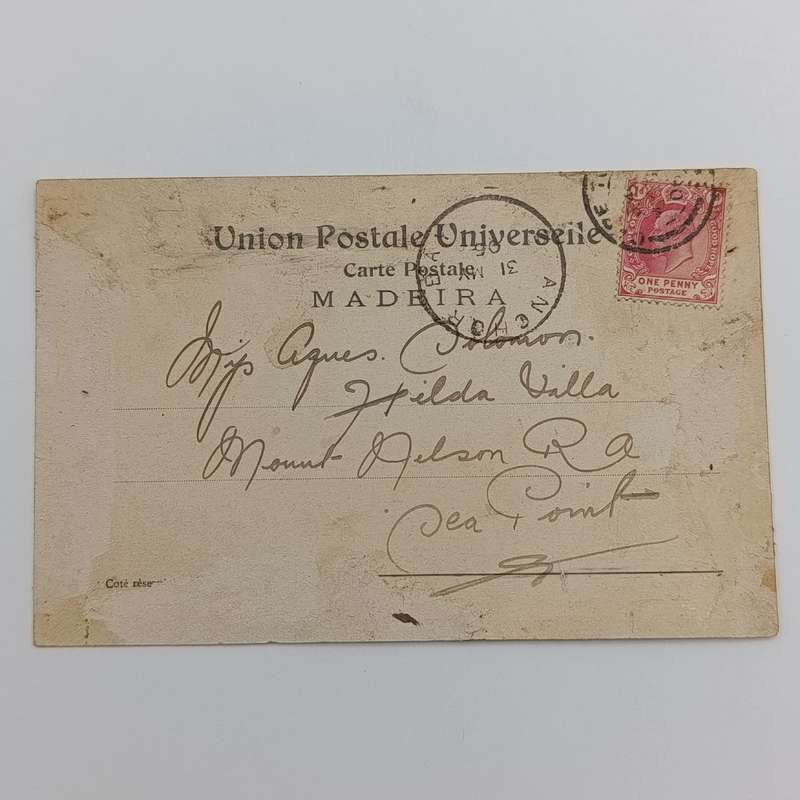 Union Postale Universelle
Carte Postale
MADEIRA
ONE PENNY
POSTAGE
31
MY
Miss Agnes. Solomon.
Hilda Villa
Mount Nelson Rd
Sea Point
Coté rése